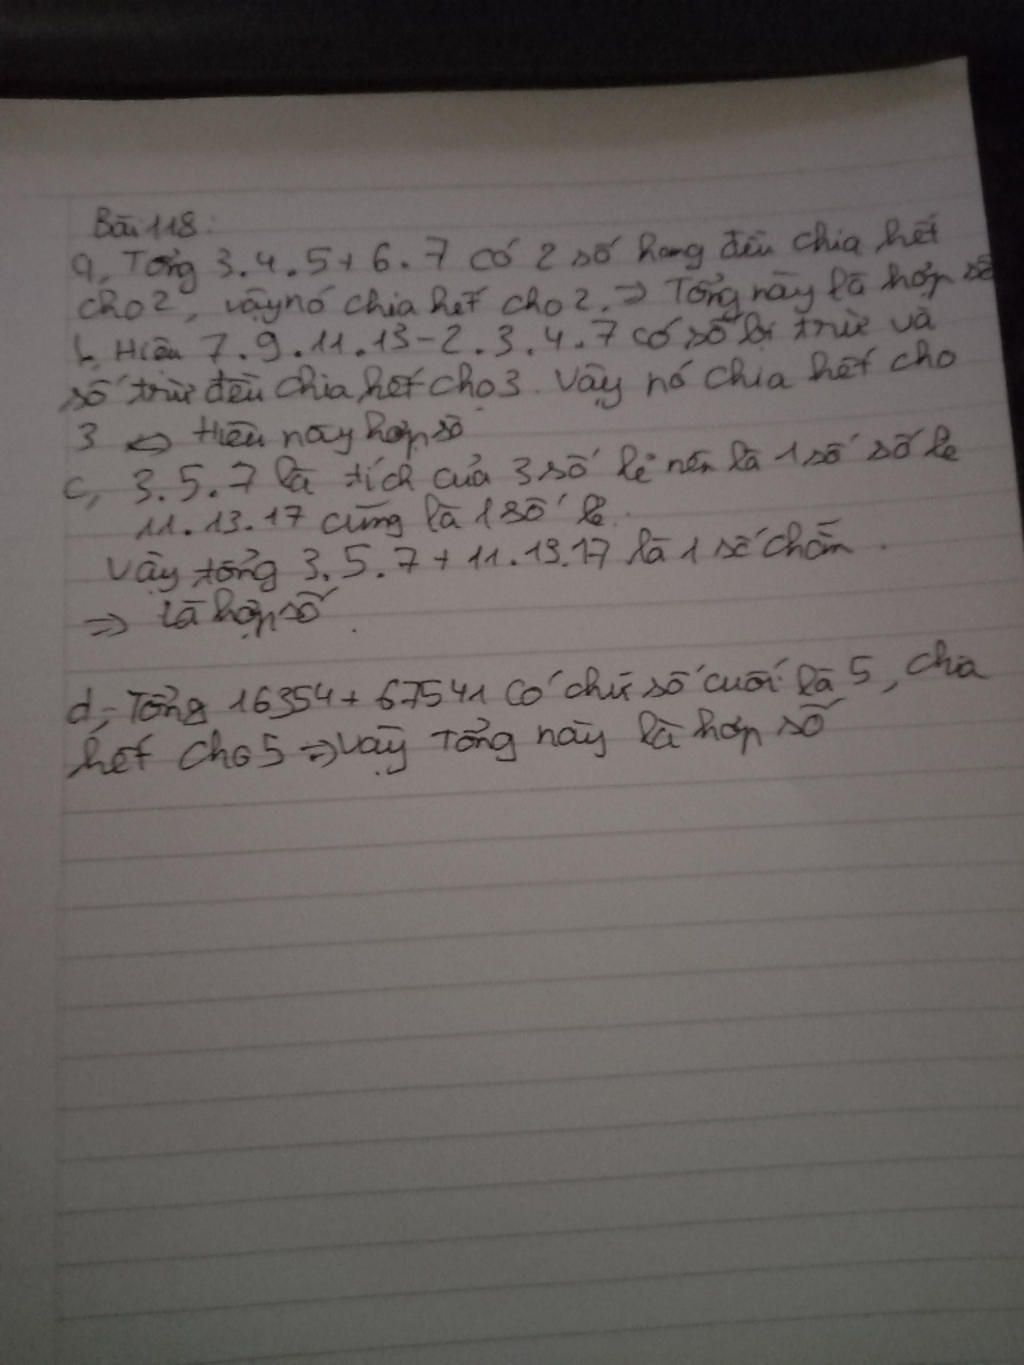 Bài 118:
a, Tổng 3.4.5+6.7 có 2 số hang đều chia hết
cho 2, vậy nó chia hết cho 2. => Tổng này là hợp số
b, Hiệu 7.9.11.13-2.3.4.7 có số bị trừ và
số trừ đều chia hết cho 3. Vậy nó chia hết cho
3 <=> Hiệu này hợp số
c, 3.5.7 là tích của 3 số lẻ nên là 1 số số lẻ
11.13.17 cũng là 1 số lẻ.
Vậy tổng 3.5.7+11.13.17 là 1 số chẵn.
=> Là hợp số.
d, Tổng 16354+67541 có chữ số cuối là 5, chia
hết cho 5 => vậy Tổng này là hợp số